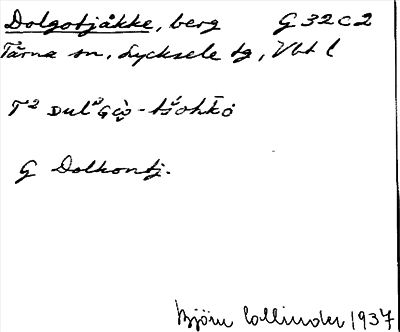 Dolgotjåkke, berg G 32 c 2
Tärna sn, Lycksele lg, Vbt l
G Dolkontj.
Björn Collinder 1937